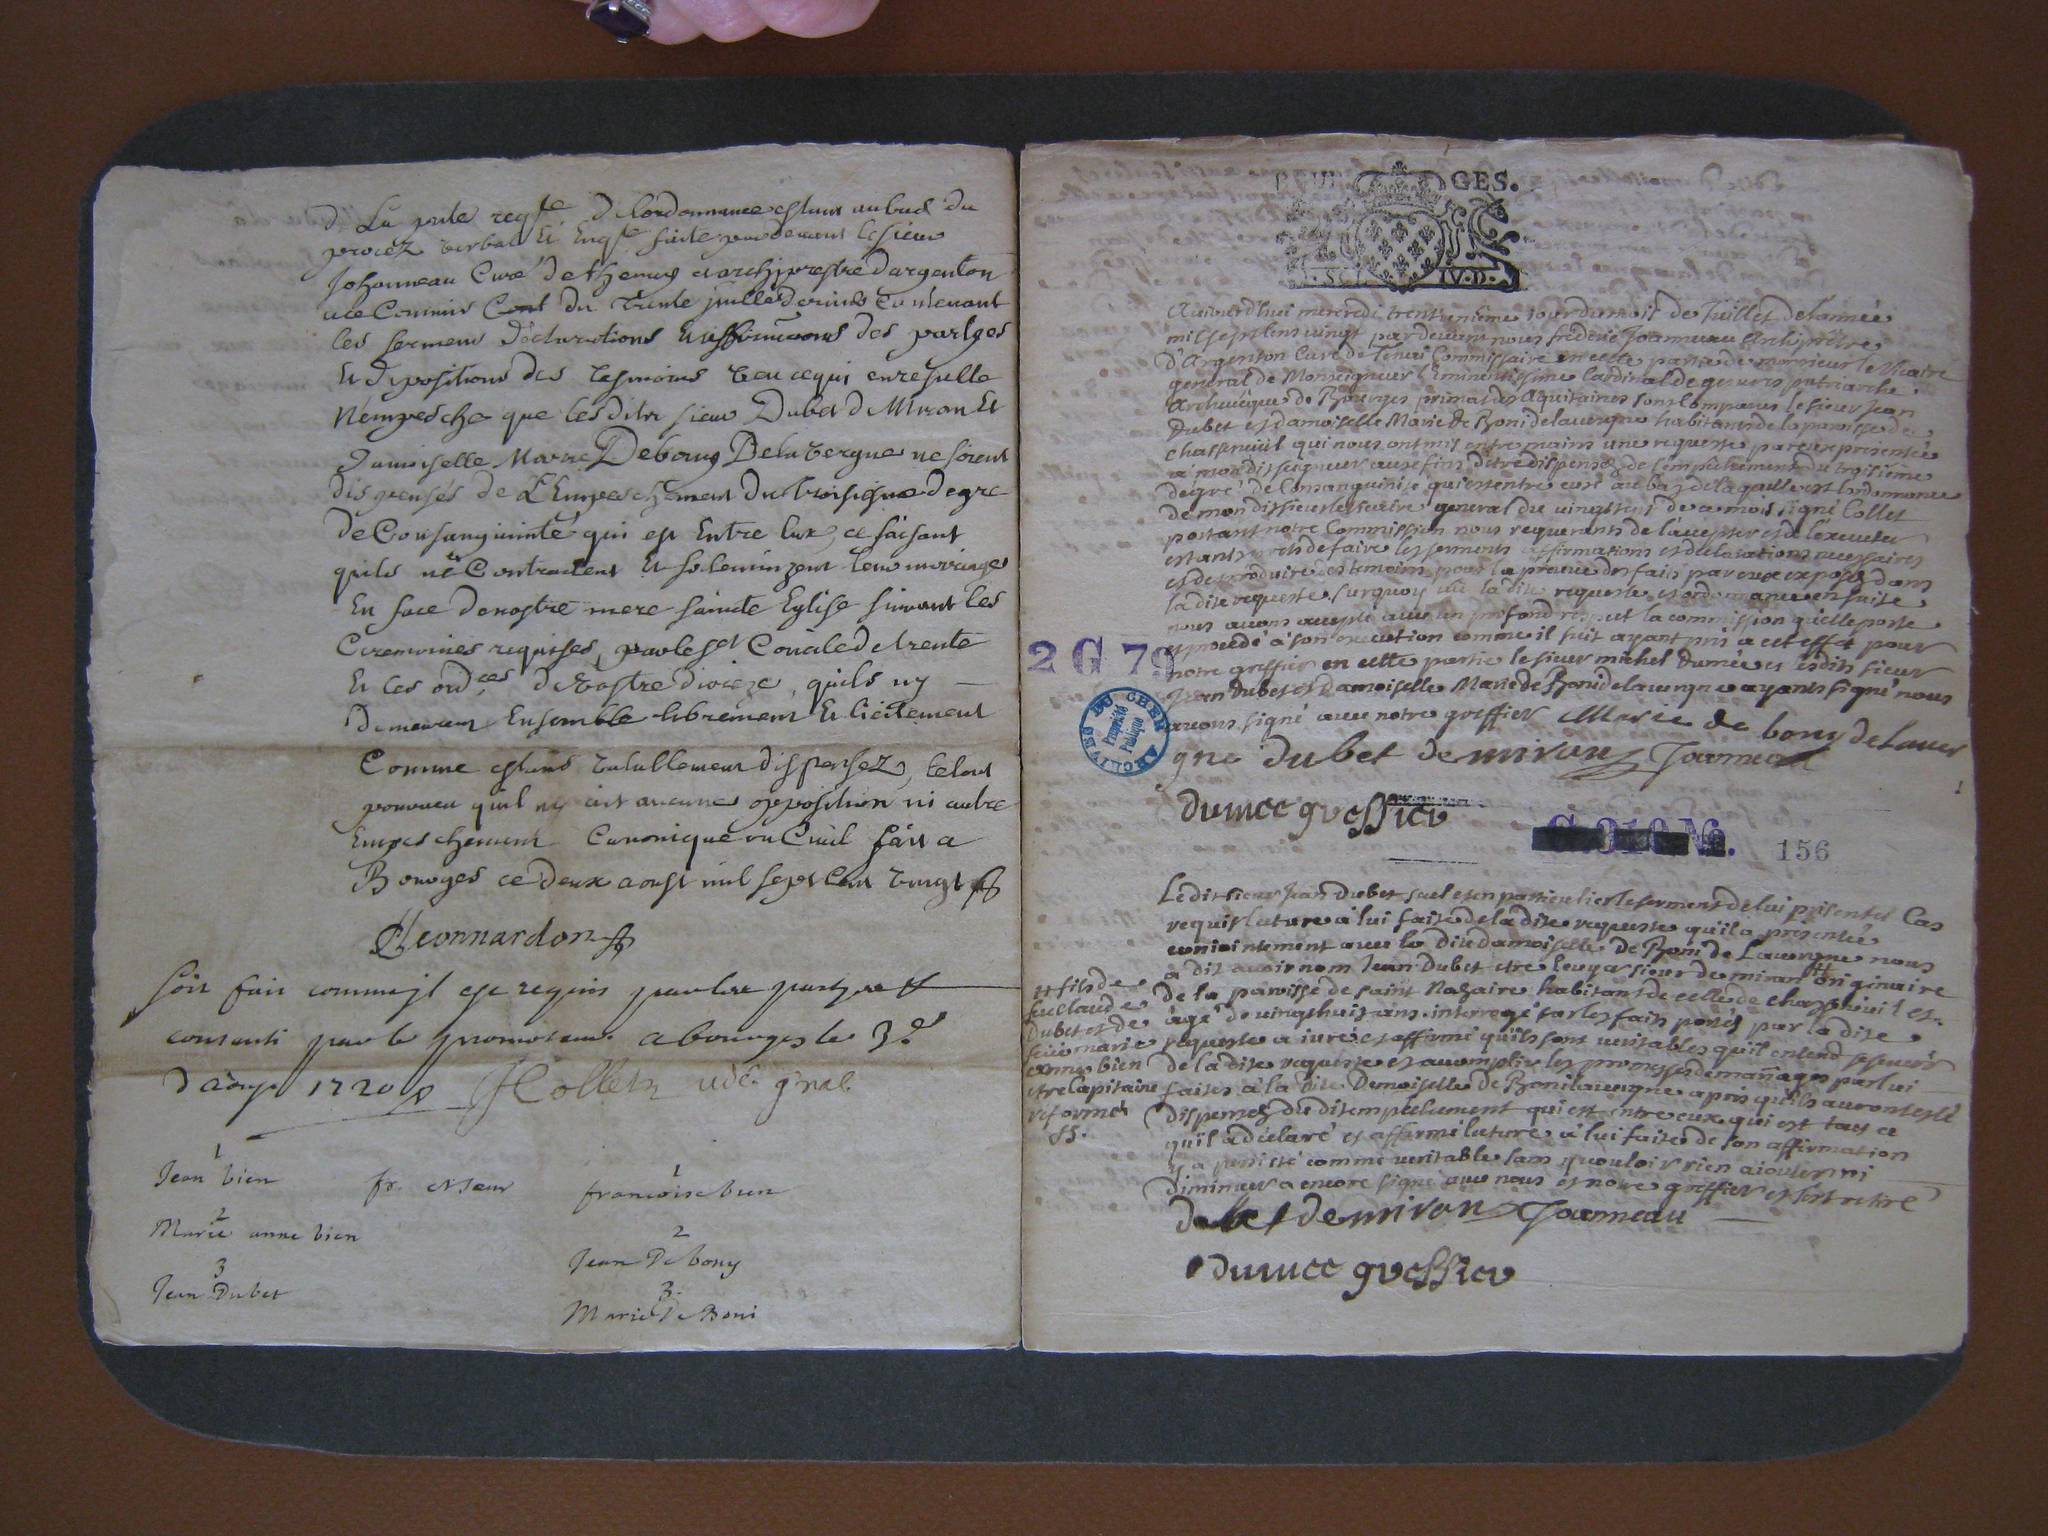 La pnte reqte. De lordonnance estant au bas du
procez verbal Et Enqte faite pardevant le sieur
Johanneau Curé de thenay et archiprestre d'argenton
a ce Commis du trente juillet dernier Contenant
les sermens Declarations Et affirmations des parties
Et Depositions des tesmoins Veu ce qui en resulte
N'empesche que lesdits sieur Dubet De Miron Et
Damoiselle Marie Debony Delavergne ne soient
dispensés de L'Empeschement Du troisiesme degré
De Consanguinité qui est Entre Eux, ce faisant
quils ne Contractent Et solemnizent leur mariage
En face de nostre mere sainte Eglise suivant les
Ceremonies requises, par le st Concile de trente
Et les ordces De Vostre dioceze, quils ny
Demeurent Ensemble librement Et licitement
Comme estans Vallablement dispensez, le tout
pourveu quil ny ait aucune opposition ni autre
Empeschement Canonique ou Civil fait a
Bourges ce deux aoust mil sept Cent Vingt
Leonnardon
soit fait comme il est requis par les parties et
consenti par le promoteur a bourges le 3e
D'aoust 1720 Collet vic. g'nal
1
Jean bien fr. et sœur
1
francoise bien
2
Marie anne bien
2
Jean De bony
3
Jean Dubet
3
Marie De Boni
GES.
IV.D.
Aujourd'hui mercredi trentunieme jour du mois de Juillet de l'année
mil sept cens vingt par devant nous frederic Joanneau Archiprêtre
d'Argenton Curé de Tenai Commissaire en cette partie de monsieur le Vicaire
general de Monseigneur l'Eminentissime Cardinal de gesvres patriarche
Archevêque de Bourges primat des Aquitaines sont comparus le sieur Jean
Dubet et damoiselle Marie de Boni delavergne habitans de la paroisse de
chasseneuil qui nous ont mis entre mains une requeste par eux presentée
a mondit seigneur aux fins d'etre dispensez de l'empéchement du troisiéme
degré de Consanguinité qui est entre eux au bas de laquelle est l'ordonnance
de mondit sieur le vicaire general du vingt six de ce mois signé Collet
portant notre Commission nous requerants de l'accepter et de l'executer
estants prets de faire les serments affirmations et declarations necessaires
et de produire des temoins pour la preuve des faits par eux exposez dans
la dite requeste, surquoy vû la dite requeste et ordonnance en suite
nous avons accepté avec un profond respect la commission qu'elle porte
et procedé à son execution comme il suit ayant pris a cet effet pour
notre greffier en cette partie le sieur michel Dumée et lesdits sieur
Jean Dubet et Damoiselle Marie de Boni delavergne ayants signé nous
avons signé avec notre greffier Marie de bony de Laver
gne Dubet de miron Joanneau
dumee greffier
2 G 79
ARCHIVES DU CHER
Propriété
Publique
156
Ledit sieur Jean Dubet seul et en particulier le serment de lui pris en tel Cas
requis lature à lui faite de la dite requeste qu'il a presentée
conjointement avec la dite damoiselle De Boni de Lavergne nous
a dit avoir nom Jean Dubet etre sieur de miran originaire
de la paroisse de saint Nazaire habitant de celle de chasseneuil et
âgé de vingt huit ans interrogé sur les faits posés par la dite
requeste a juré et affirmé qu'ils sont veritables qu'il entend se servir
de la dite requeste et accomplir les promesses de mariage par lui
faites à la dite Demoiselle de Boni lavergne aprés qu'ils auront esté
dispensez du dit empéchement qui est entre eux qui est tout ce
qu'il a déclaré et affirmé lature à lui faite de son affirmation
y a persisté comme veritable sans y vouloir rien ajouter ni
diminuer a encore signé avec nous et notre greffier et s'est retiré
fils de
feu Claude
Dubet et de
feüe marie
anne bien
etre Capitaine
reformé
Dubet demiron Joanneau
dumee greffier